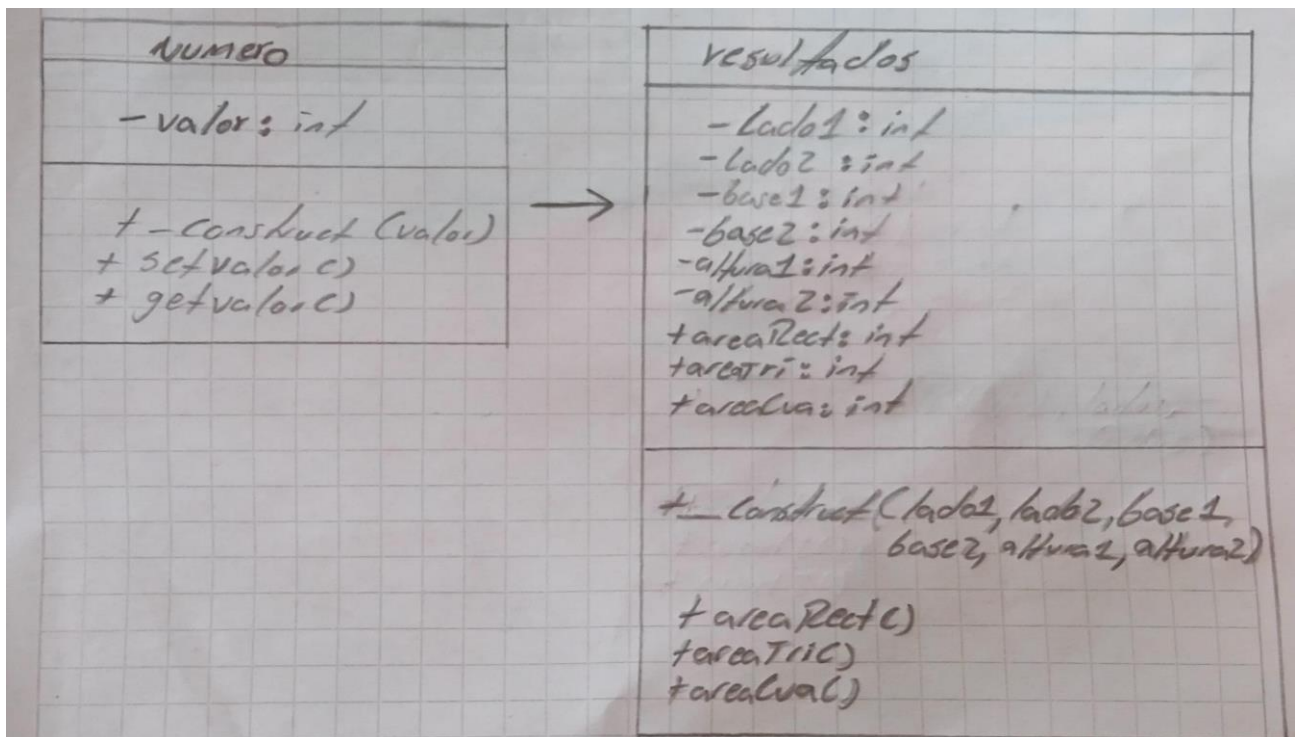 Numero
- valor : int
+ _ construct (valor)
+ setvalor()
+ getvalor()
resultados
- Lado1 : int
- lado2 : int
- base1 : int
- base2 : int
- altura1 : int
- altura2 : int
+ areaRect : int
+ areaTri : int
+ areaCua : int
+ _ construct (lado1, lado2, base1,
base2, altura1, altura2)
+ areaRect()
+ areaTri()
+ areaCua()